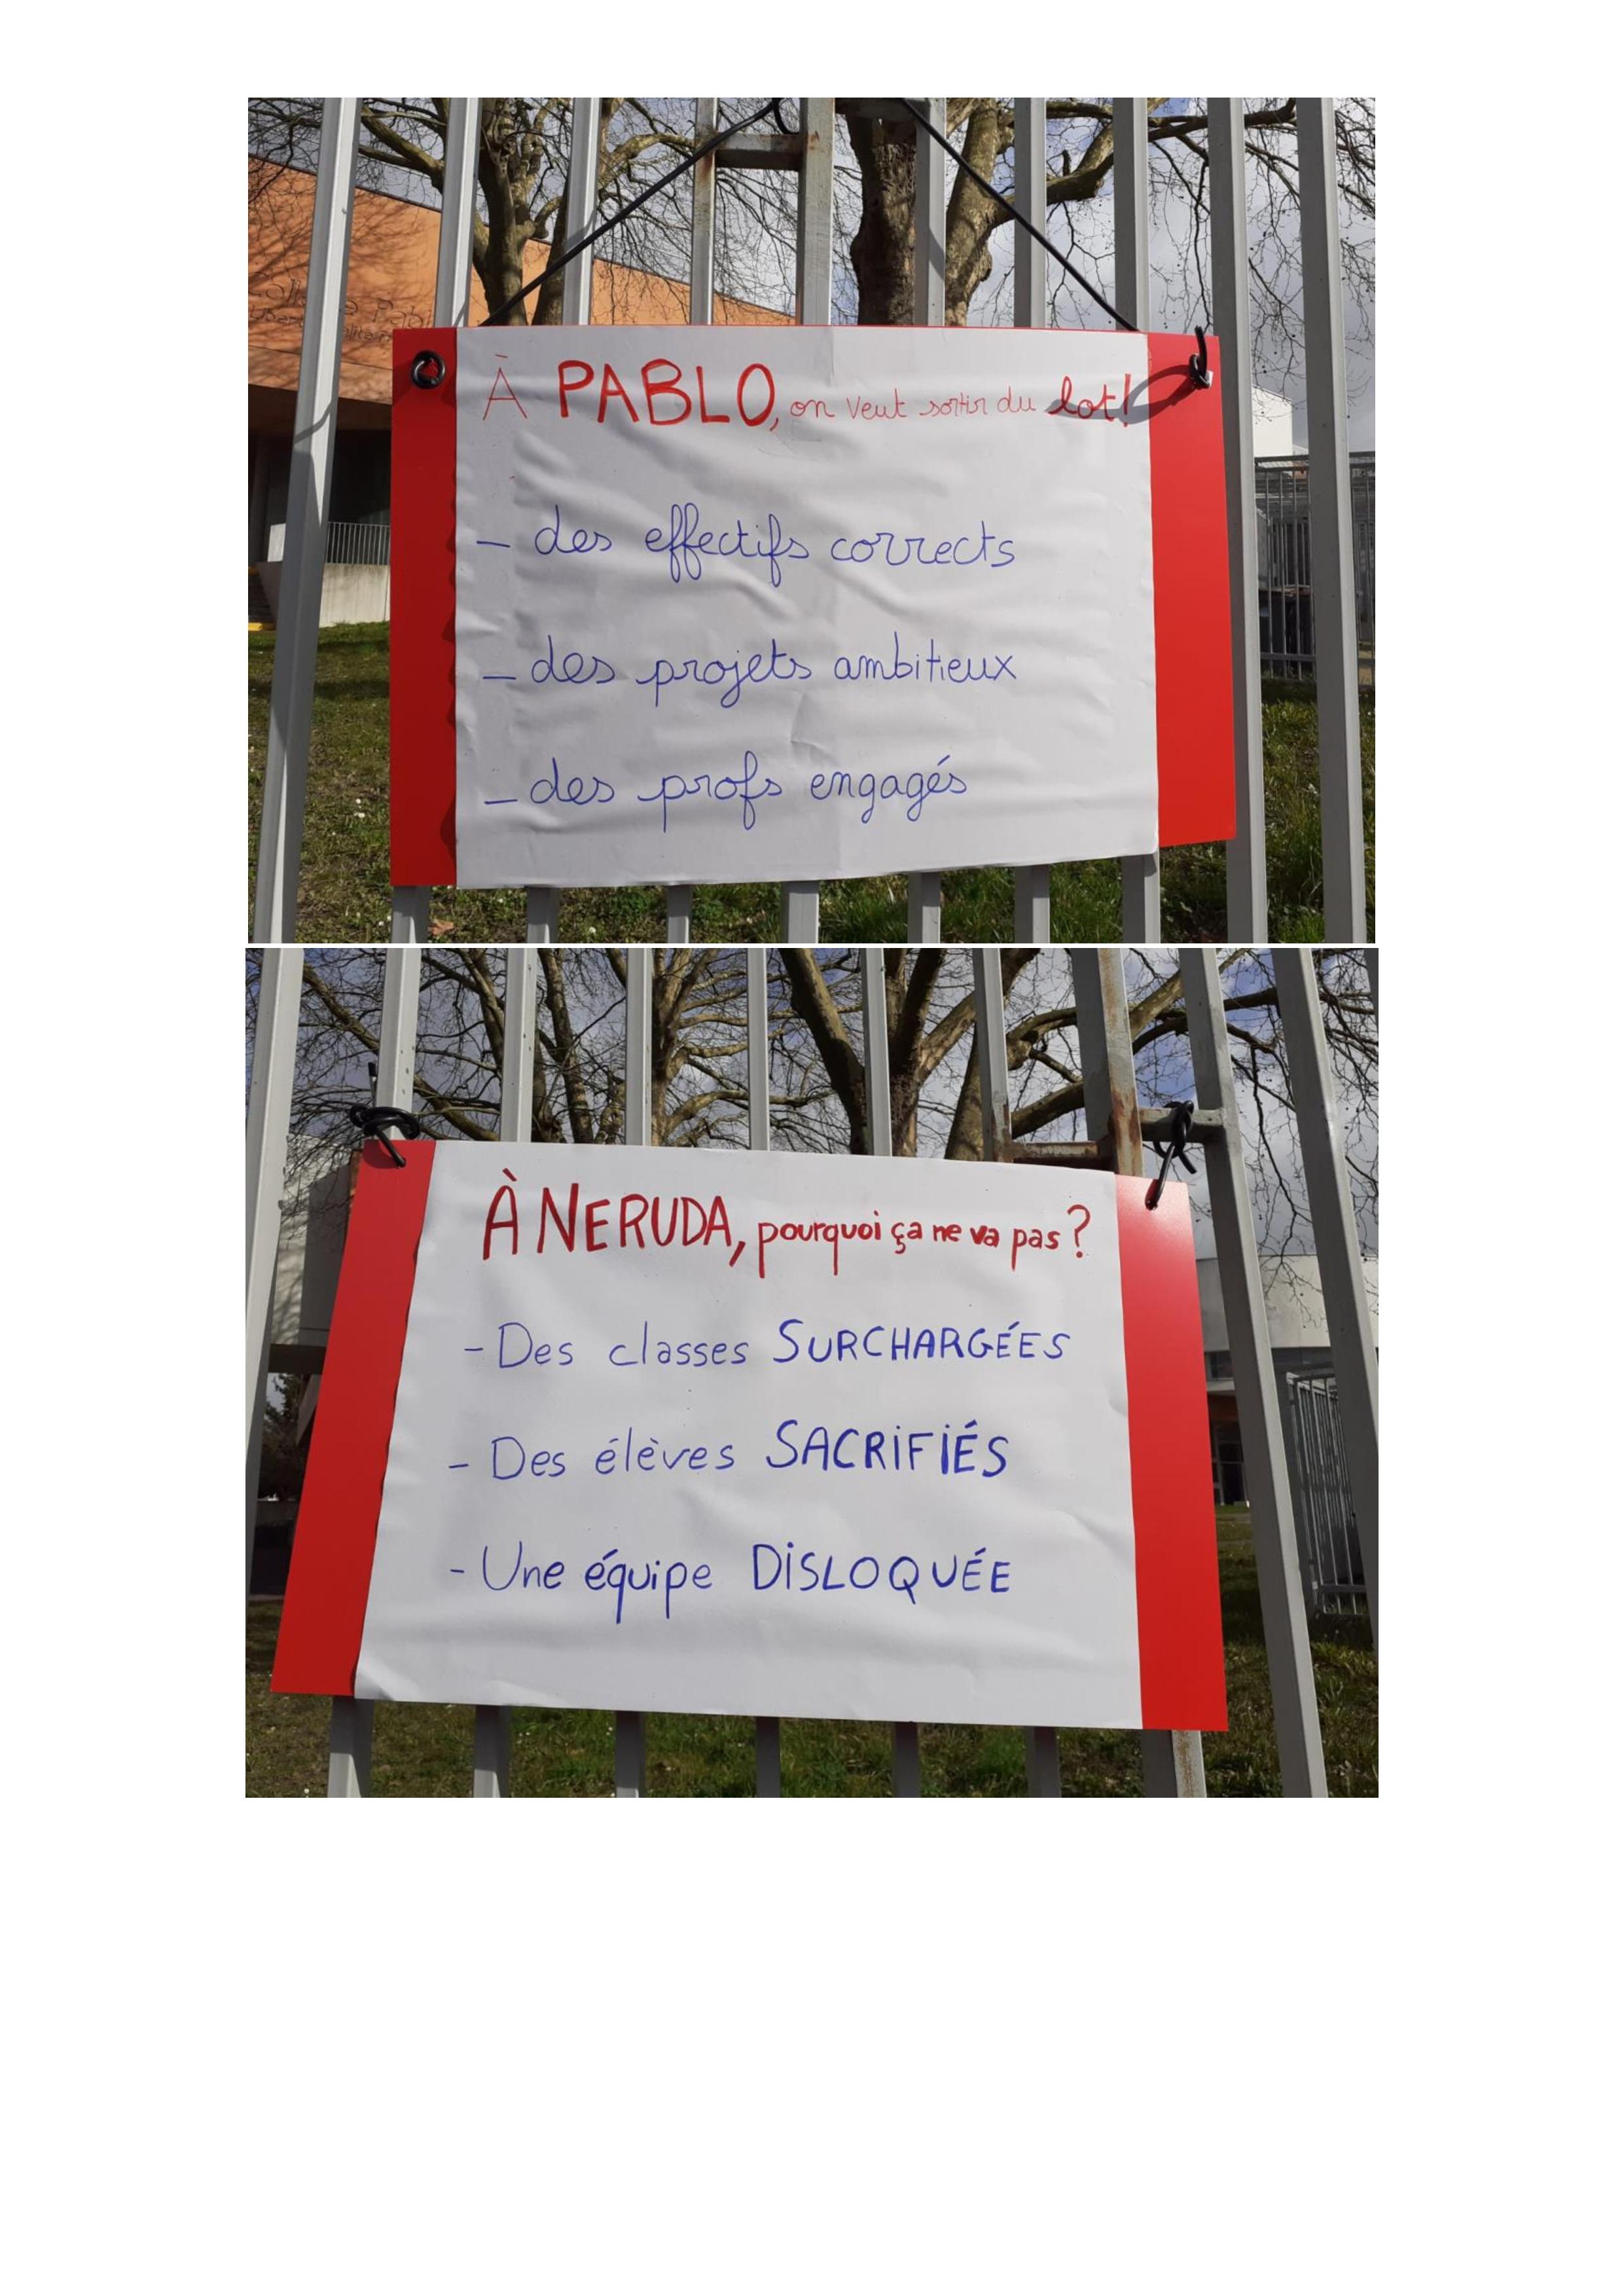 À PABLO, on veut sortir du lot!
– des effectifs corrects
– des projets ambitieux
– des profs engagés
À NERUDA, pourquoi ça ne va pas ?
- Des classes SURCHARGÉES
- Des élèves SACRIFIÉS
- Une équipe DISLOQUÉE